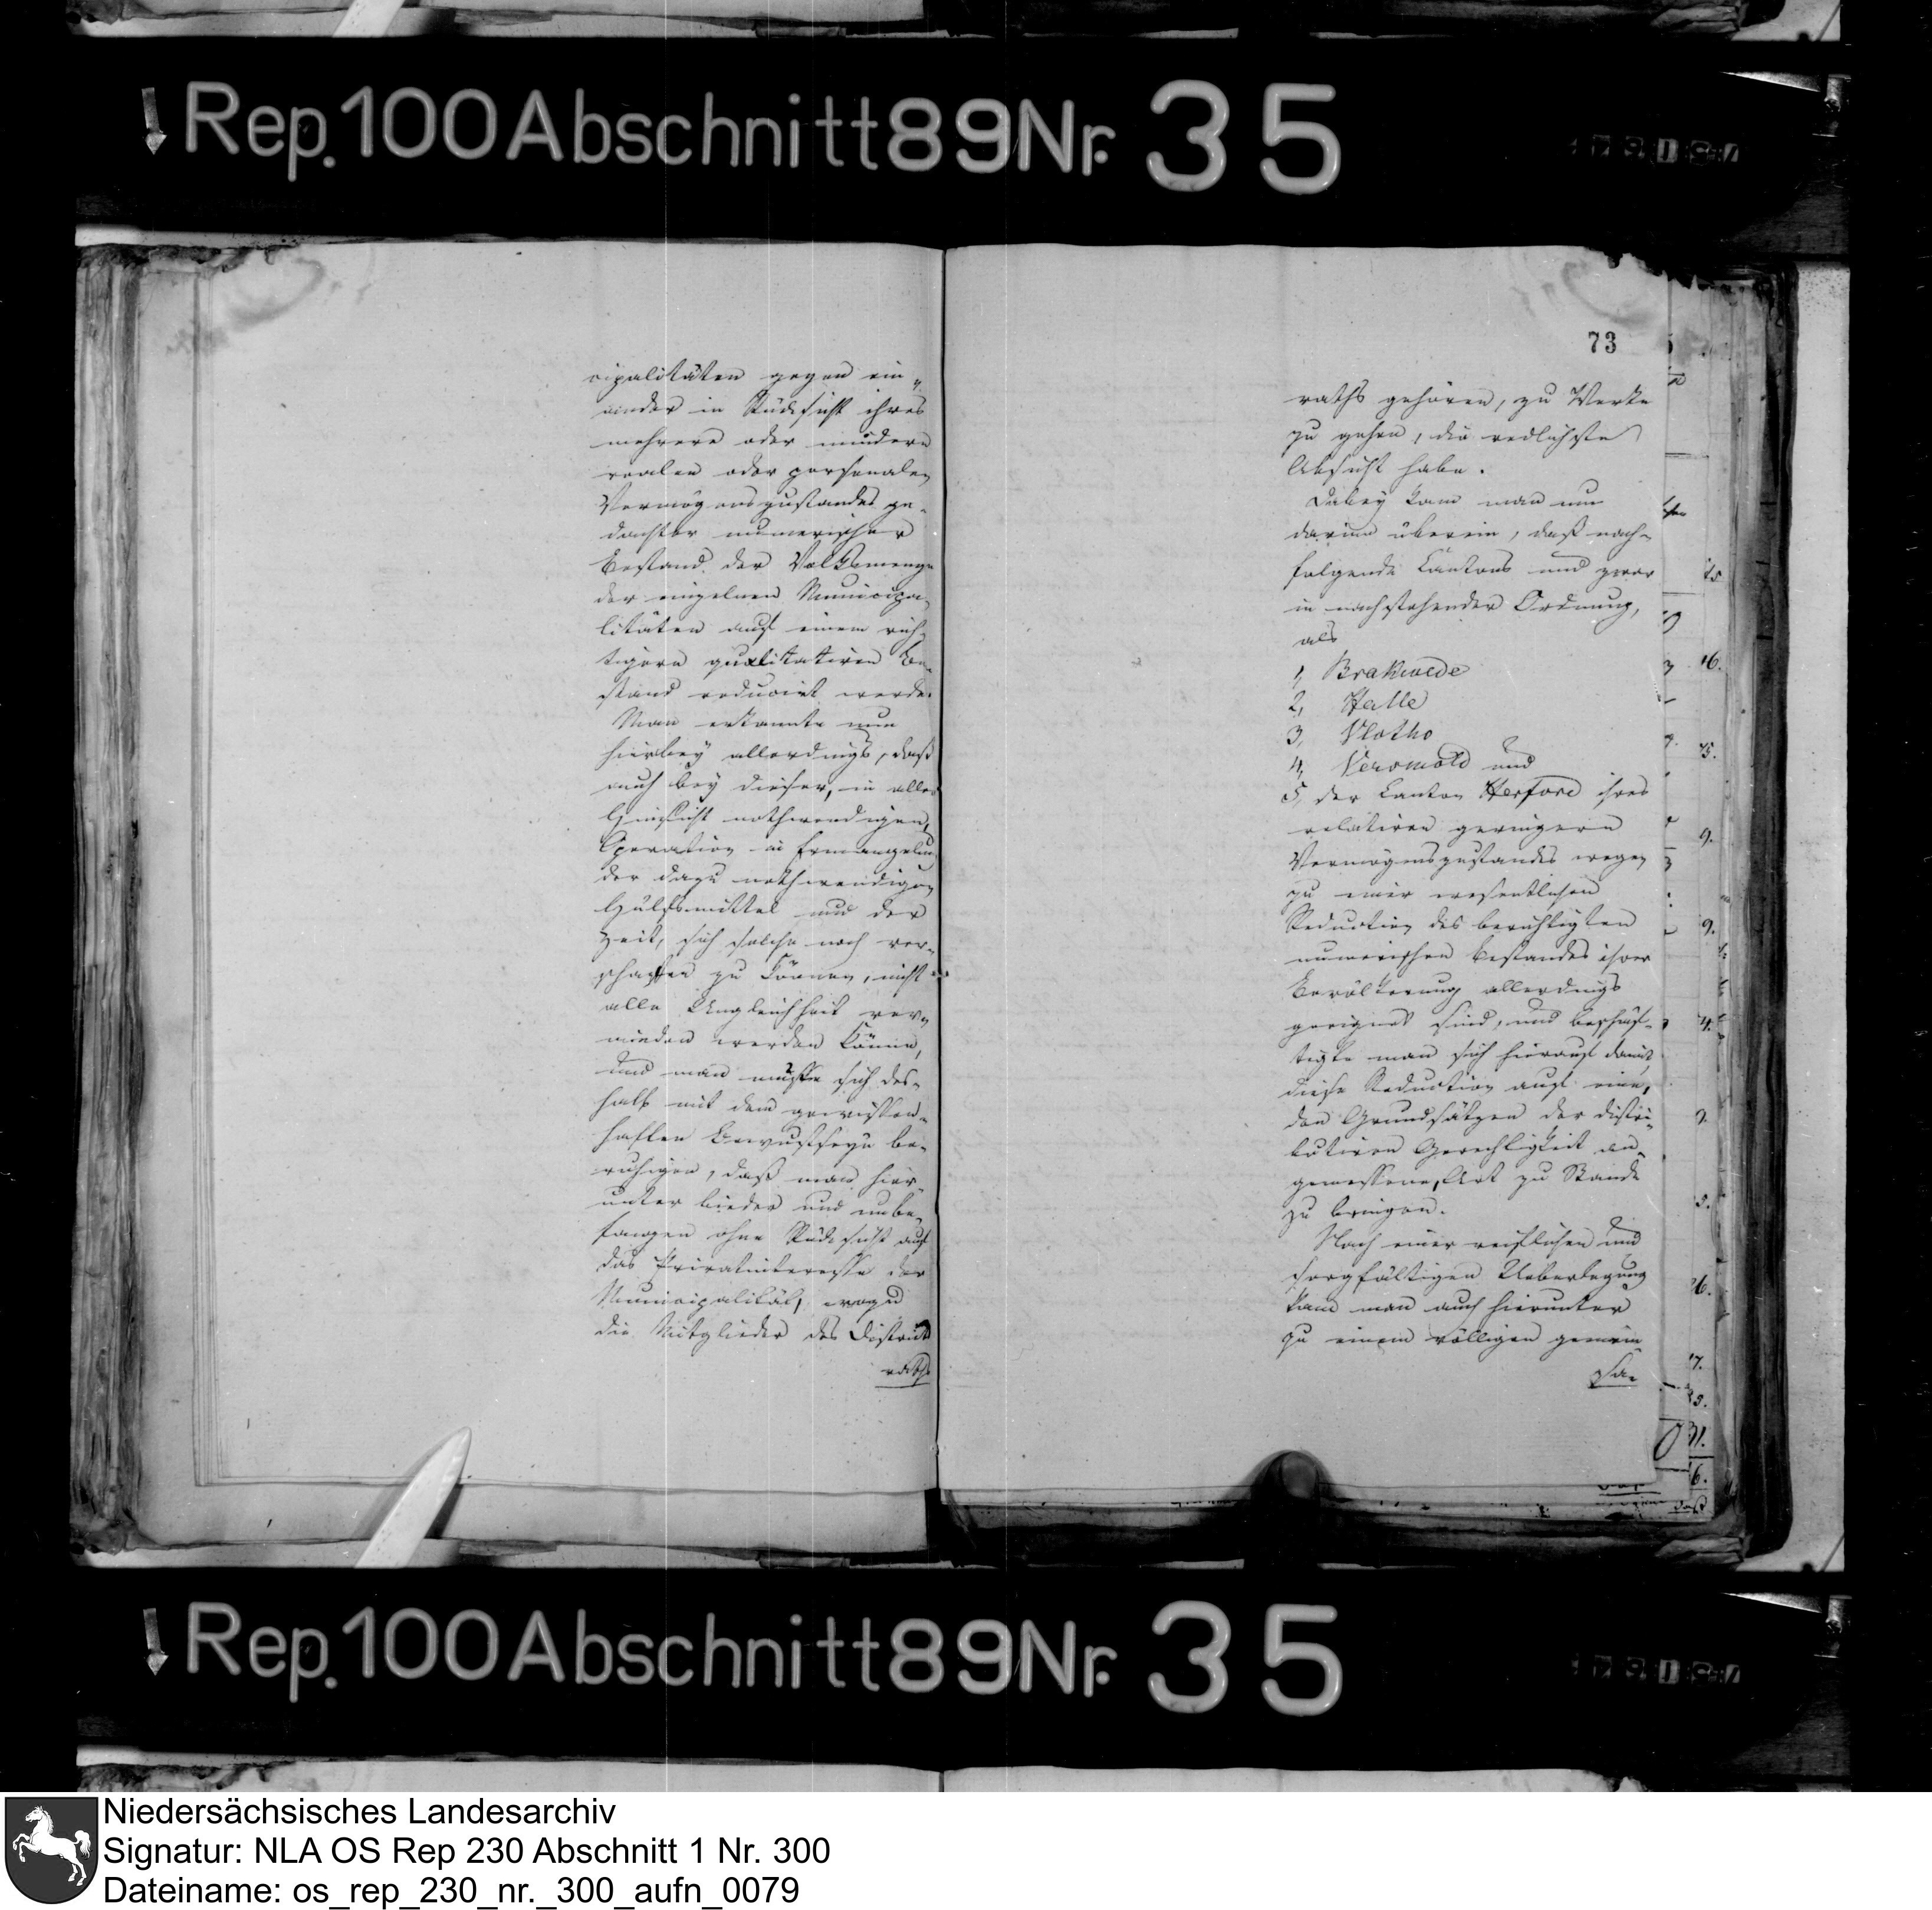 Rep. 100 Abschnitt 89 Nr. 35
cipalitäten gegen ein„
ander in Rücksicht ihres
mehrern oder mindern
realen oder personalen
Vermögenszustandes ge„
dachter numerischer
Bestand der Volksmenge
der einzelnen Municipa„
litäten auf einem rich„
tigern qualitativen Be„
stand reducirt werde.
Man erkannte nun
hierbey allerdings, daß
auch bey dieser, in aller
Hinsicht nothwendigen,
Operation in Ermangelung
der dazu nothwendigen
Hülfsmittel und der
Zeit, sich solche noch ver„
schaffen zu können, nicht
alle Ungleichheit ver„
mieden werden könne,
und man müsse sich des„
halb mit dem gewissen„
haften Bewustseyn be„
ruhigen, daß man hier„
unter bieder und unbe„
fangen ohne Rücksicht auf
das Privatinteresse der
Municipalität, wozu
die Mitglieder des District
raths
73
raths gehören, zu Werke
zu gehen, die redlichste
Absicht habe.
Dabey kam man nun
darinn überein, daß nach„
folgende Cantons und zwar
in nachstehender Ordnung,
als
1, Brakwede
2, Halle
3, Vlotho
4, Versmold und
5, der Canton Herford ihres
relativen geringern
Vermögenszustandes wegen
zu einer wesentlichen
Reduction des berichtigten
numerischen Bestandes ihrer
Bevölkerung allerdings
geeignet sind, und beschäf„
tigte man sich hierauf damit,
diese Reduction auf eine,
den Grundsätzen der distri„
butiven Gerechtigkeit an„
gemessene, Art zu Stande
zu bringen.
Nach einer reiflichen und
sorgfältigen Ueberlegung
kam man auch hierunter
zu einem völligen gemein„
scha„
Rep. 100 Abschnitt 89 Nr. 35
Niedersächsisches Landesarchiv
Signatur: NLA OS Rep 230 Abschnitt 1 Nr. 300
Dateiname: os_rep_230_nr._300_aufn_0079